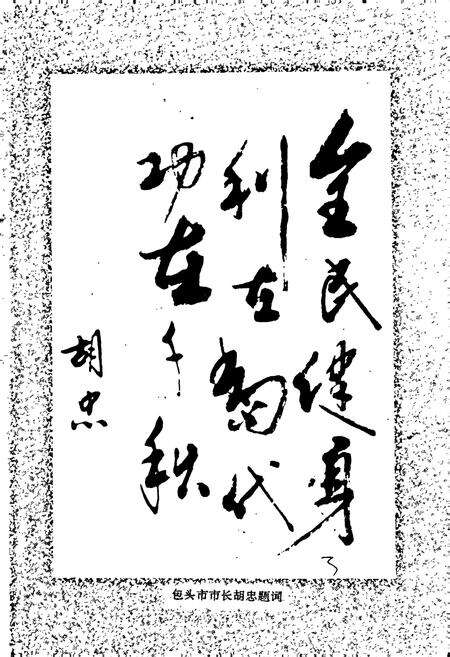 全民健身
利在代
功在千秋
胡忠
包头市市长胡忠题词